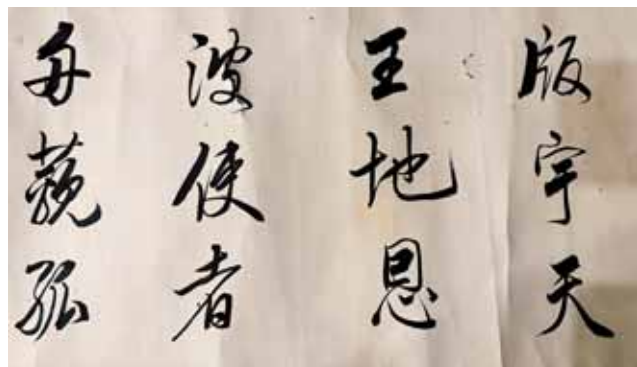 版宇天
王地恩
波使者
舟藐孤